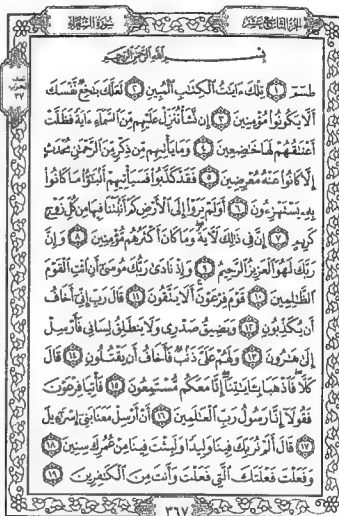 الجزء التاسع عشر
سورة الشعراء
بسم الله الرحمن الرحيم
طسٓمٓ ١ تِلْكَ ءَايَٰتُ ٱلْكِتَٰبِ ٱلْمُبِينِ ٢ لَعَلَّكَ بَٰخِعٌ نَّفْسَكَ
أَلَّا يَكُونُوا۟ مُؤْمِنِينَ ٣ إِن نَّشَأْ نُنَزِّلْ عَلَيْهِم مِّنَ ٱلسَّمَآءِ ءَايَةً فَظَلَّتْ
أَعْنَٰقُهُمْ لَهَا خَٰضِعِينَ ٤ وَمَا يَأْتِيهِم مِّن ذِكْرٍ مِّنَ ٱلرَّحْمَٰنِ مُحْدَثٍ
إِلَّا كَانُوا۟ عَنْهُ مُعْرِضِينَ ٥ فَقَدْ كَذَّبُوا۟ فَسَيَأْتِيهِمْ أَنۢبَٰٓؤُا۟ مَا كَانُوا۟
بِهِۦ يَسْتَهْزِءُونَ ٦ أَوَلَمْ يَرَوْا۟ إِلَى ٱلْأَرْضِ كَمْ أَنۢبَتْنَا فِيهَا مِن كُلِّ زَوْجٍ
كَرِيمٍ ٧ إِنَّ فِى ذَٰلِكَ لَءَايَةً وَمَا كَانَ أَكْثَرُهُم مُّؤْمِنِينَ ٨ وَإِنَّ
رَبَّكَ لَهُوَ ٱلْعَزِيزُ ٱلرَّحِيمُ ٩ وَإِذْ نَادَىٰ رَبُّكَ مُوسَىٰٓ أَنِ ٱئْتِ ٱلْقَوْمَ
ٱلظَّٰلِمِينَ ١٠ قَوْمَ فِرْعَوْنَ أَلَا يَتَّقُونَ ١١ قَالَ رَبِّ إِنِّىٓ أَخَافُ
أَن يُكَذِّبُونِ ١٢ وَيَضِيقُ صَدْرِى وَلَا يَنطَلِقُ لِسَانِى فَأَرْسِلْ
إِلَىٰ هَٰرُونَ ١٣ وَلَهُمْ عَلَىَّ ذَنۢبٌ فَأَخَافُ أَن يَقْتُلُونِ ١٤ قَالَ
كَلَّا فَٱذْهَبَا بِـَٔايَٰتِنَآ إِنَّا مَعَكُم مُّسْتَمِعُونَ ١٥ فَأْتِيَا فِرْعَوْنَ
فَقُولَآ إِنَّا رَسُولُ رَبِّ ٱلْعَٰلَمِينَ ١٦ أَنْ أَرْسِلْ مَعَنَا بَنِىٓ إِسْرَٰٓءِيلَ
١٧ قَالَ أَلَمْ نُرَبِّكَ فِينَا وَلِيدًا وَلَبِثْتَ فِينَا مِنْ عُمُرِكَ سِنِينَ ١٨
وَفَعَلْتَ فَعْلَتَكَ ٱلَّتِى فَعَلْتَ وَأَنتَ مِنَ ٱلْكَٰفِرِينَ ١٩
نصف
الحزب
٣٧
٣٦٧